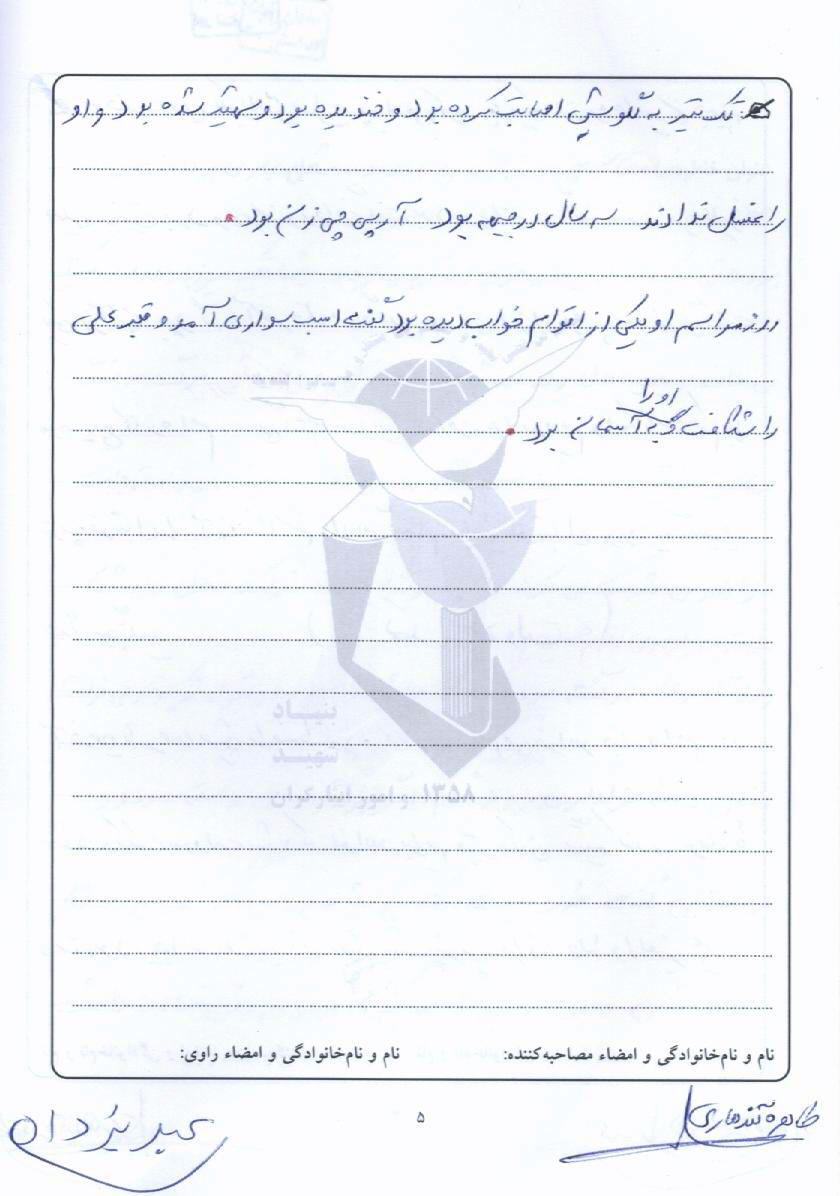 تک تیر به گلویش اصابت کرده بود و خندیده بود و شهید شده بود و او
را غسل ندادند سه سال در جبهه بود آرپی جی زن بود.
روز مراسم او یکی از اقوام خواب دیده بود گفت اسب سواری آمد و قبر علی
را شکافت و او را به آسمان برد.
بنیاد
شهید
۱۳۵۸ و امور ایثارگران
نام و نام‌خانوادگی و امضاء مصاحبه‌کننده: نام و نام‌خانوادگی و امضاء راوی:
طاهره قندهاری
۵